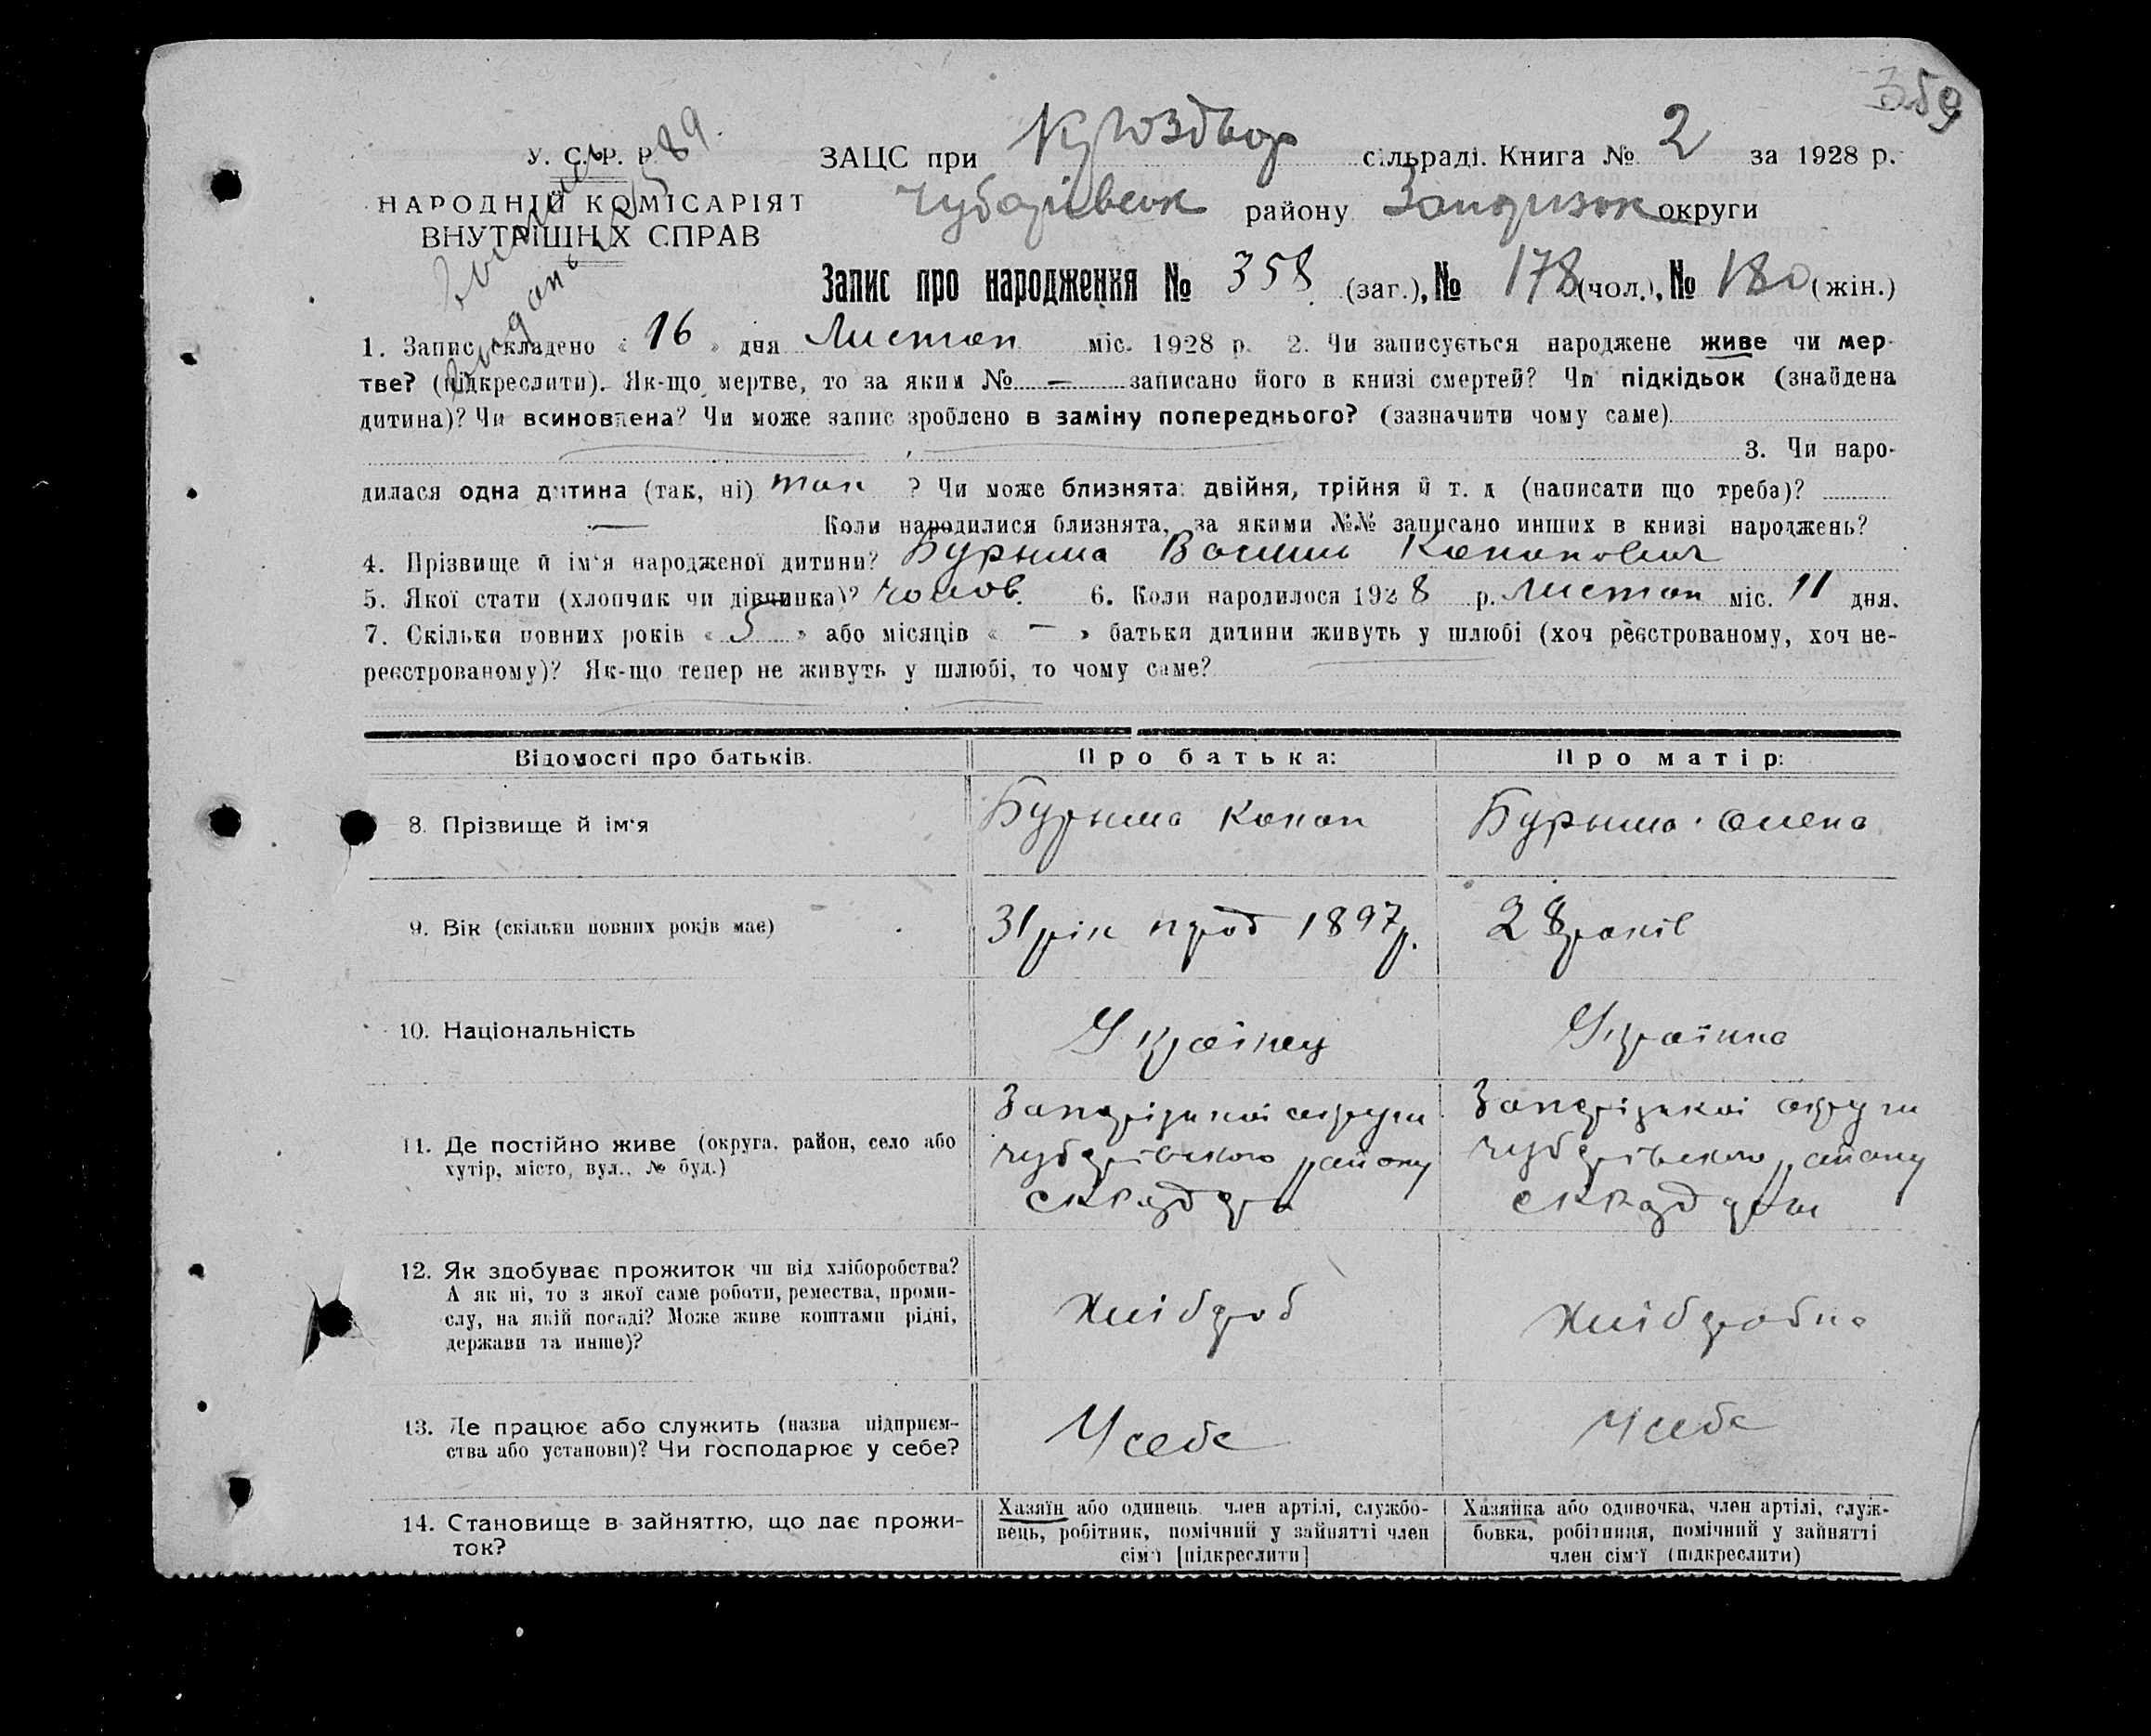 359
У. С. Р. Р.
НАРОДНІЙ КОМІСАРІЯТ
ВНУТРІШНІХ СПРАВ
ЗАЦС при сільраді. Книга № 2 за 1928 р.
Чубарівськ району Запоризьк округи
Запис про народження № 358 (заг.), № 178 (чол.), № 180 (жін.)
1. Запис складено « 16 » дня Листоп міс. 1928 р. 2. Чи записується народжене живе чи мер-
тве? (підкреслити). Як-що мертве, то за яким № — записано його в книзі смертей? Чи підкідьок (знайдена
дитина)? Чи всиновлена? Чи може запис зроблено в заміну попереднього? (зазначити чому саме)
3. Чи наро-
дилася одна дитина (так, ні) так ? Чи може близнята: двійня, трійня й т. д (написати що треба)?
— Коли народилися близнята, за якими №№ записано инших в книзі народжень?
4. Прізвище й ім'я народженої дитини? Бурыма Василь Кононович
5. Якої стати (хлопчик чи дівчинка)? Чолов. 6. Коли народилося 1928 р. Листоп міс. 11 дня.
7. Скільки повних років « 5 » або місяців « — » батьки дитини живуть у шлюбі (хоч реєстрованому, хоч не-
реєстрованому)? Як-що тепер не живуть у шлюбі, то чому саме?
Відомості про батьків. Про батька: Про матір:
8. Прізвище й ім'я Бурыма Конон Бурыма Олена
9. Вік (скільки повних років має) 31 рік 1897 р. 28 років
10. Національність Українец Українка
11. Де постійно живе (округа, район, село або
хутір, місто, вул., № буд.)
Запорізької округи Запорізької округи
Чубарівського району Чубарівського району
12. Як здобуває прожиток чи від хліборобства?
А як ні, то з якої саме роботи, ремества, проми-
слу, на якій посаді? Може живе коштами рідні,
держави та инше)?
Хлібороб Хліборобка
13. Де працює або служить (назва підприєм-
ства або установи)? Чи господарює у себе?
У себе У себе
14. Становище в зайняттю, що дає прожи-
ток?
Хазяїн або одинець, член артілі, службо-
вець, робітник, помічний у зайнятті член
сім'ї [підкреслити]
Хазяйка або одиночка, член артілі, служ-
бовка, робітниця, помічний у зайнятті
член сім'ї (підкреслити)